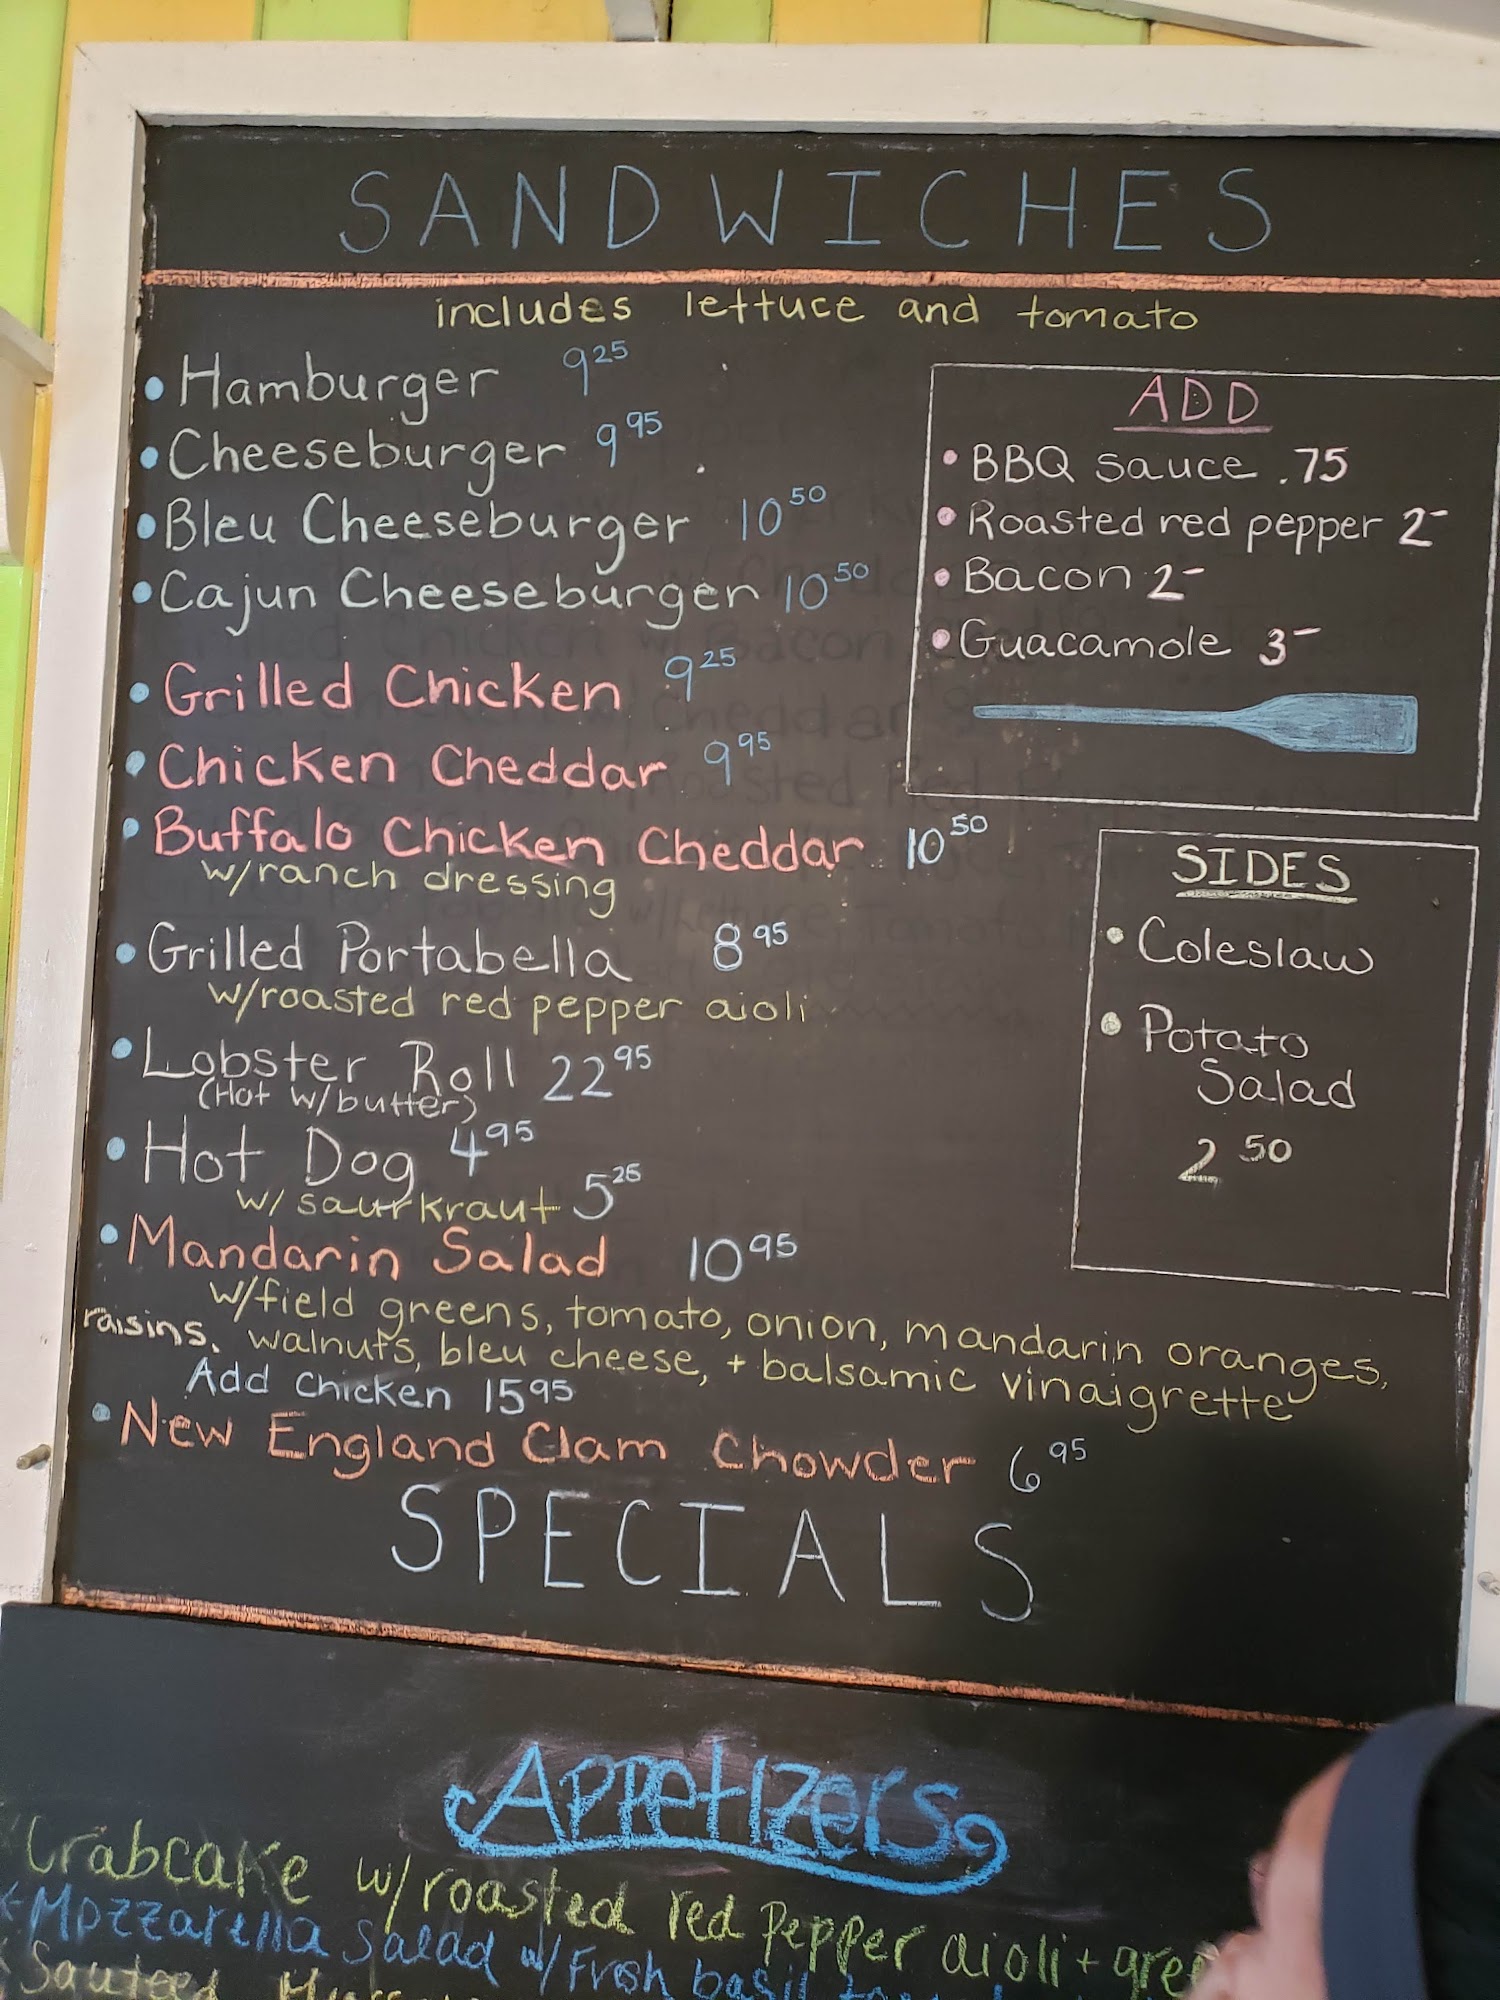 SANDWICHES
includes lettuce and tomato
• Hamburger 9.25
• Cheeseburger 9.95
• Bleu Cheeseburger 10.50
• Cajun Cheeseburger 10.50
• Grilled Chicken 9.25
• Chicken Cheddar 9.95
• Buffalo Chicken Cheddar 10.50
w/ranch dressing
• Grilled Portabella 8.95
w/roasted red pepper aioli
• Lobster Roll 22.95
(Hot w/butter)
• Hot Dog 4.95
w/ saurkraut 5.25
• Mandarin Salad 10.95
w/field greens, tomato, onion, mandarin oranges,
raisins, walnuts, bleu cheese, + balsamic vinaigrette
Add Chicken 15.95
• New England Clam Chowder 6.95
ADD
• BBQ sauce .75
• Roasted red pepper 2-
• Bacon 2-
• Guacamole 3-
SIDES
• Coleslaw
• Potato
Salad
2.50
SPECIALS
Appetizers
Crabcake w/roasted red pepper aioli +
Mozzarella salad w/Fresh basil
Sauteed